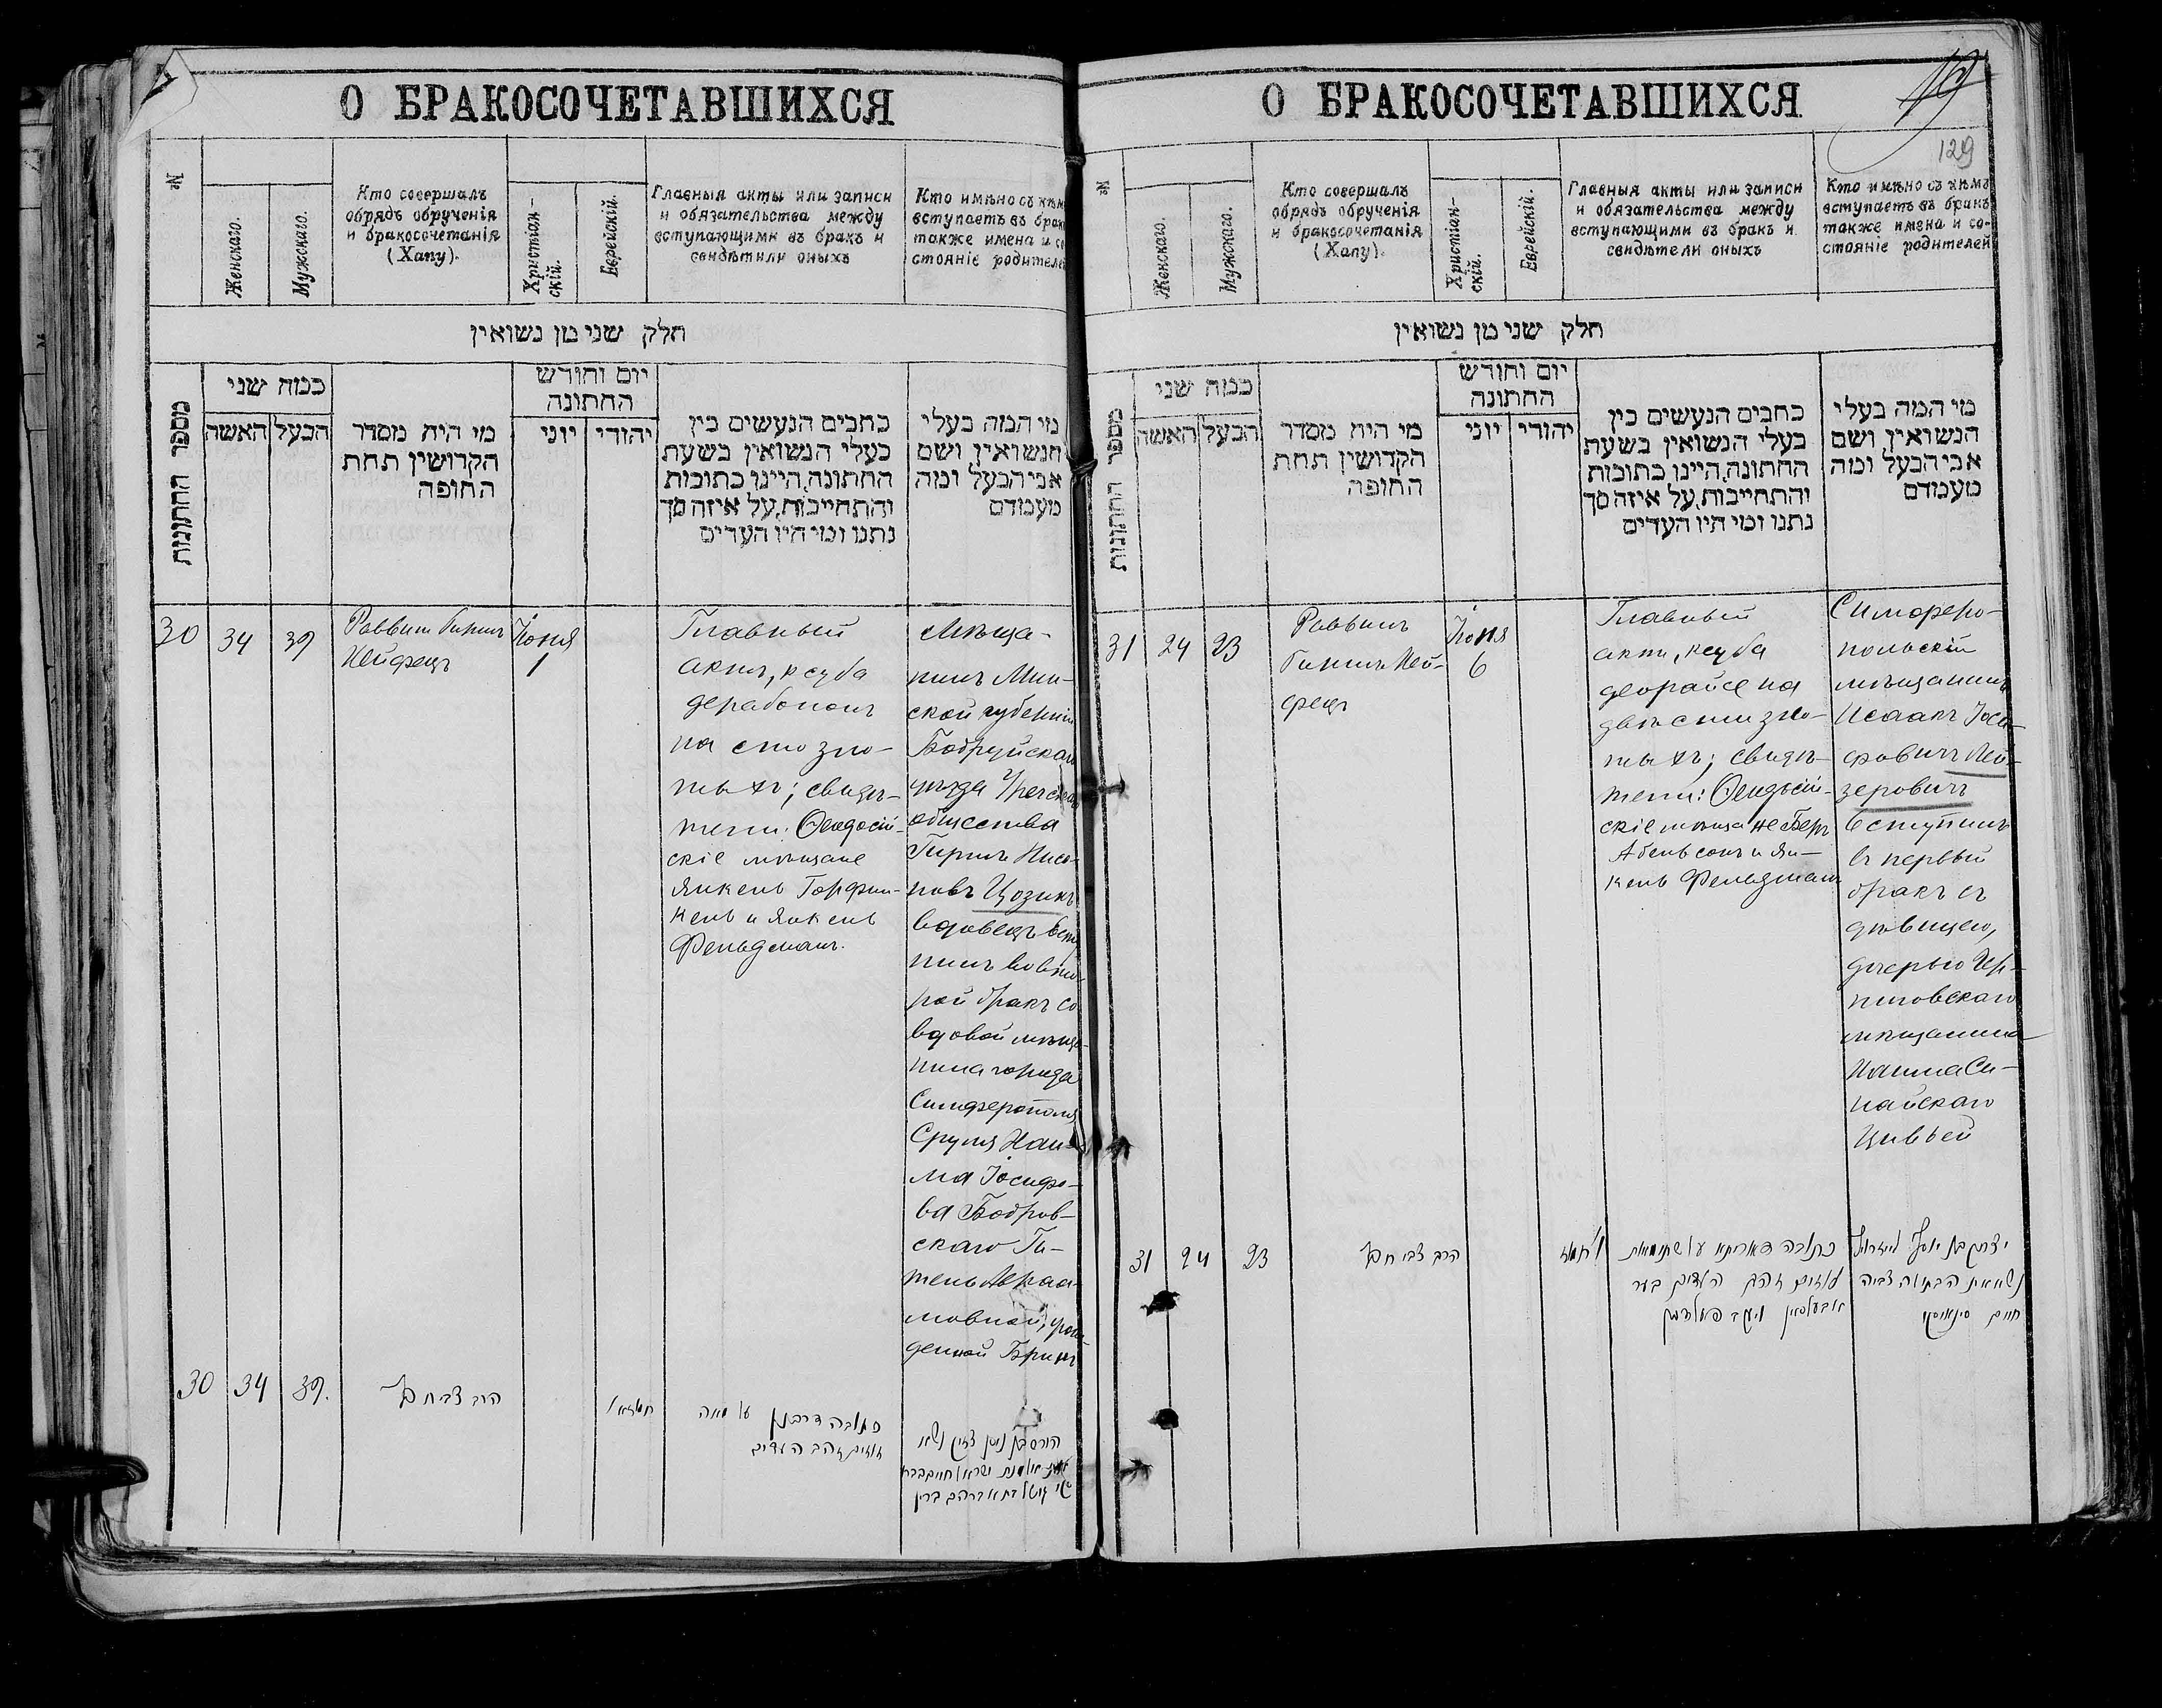 О БРАКОСОЧЕТАВШИХСЯ
№
Женскаго.
Мужскаго.
Кто совершалъ
обрядъ обрученія
и бракосочетанія
(Хапу).
Христіан-
скій.
Еврейскій.
Главныя акты или записи
и обязательства между
вступающими въ бракъ и
свидѣтили оныхъ
Кто имѣно съ кѣм
вступаетъ въ брак
также имена и со
стояніе родителей
חלק שני מן נשואין
מספר החתונות
כמה שני
האשה
הבעל
מי היה מסדר
הקדושין תחת
החופה
יום וחודש
החתונה
יוני
יהודי
כתבים הנעשים בין
בעלי הנשואין בשעת
החתונה, היינו כתובות
והתחייבות, על איזה סך
נתנו ומי היו העדים
מי המה בעלי
הנשואין ושם
אבי הבעל ומה
מעמדם
30
34
39
Раввин Гирш
Хейфецъ
Іюня
1
Главный
актъ, ксуба
дерабононъ
на сто зло-
тыхъ; свидѣ-
тели: Ѳеодосій-
скіе мѣщане
Янкель Гарфин-
кель и Янкель
Фельдманъ.
Мѣща-
нинъ Мин-
ской губерніи
Бобруйскаго
уѣзда
общества
Гиршъ Нисо-
новъ Цозикъ
вдовецъ всту
пилъ во вто-
рой бракъ со
вдовой мѣща-
нина города
Симферополя
Сруля Хаи-
ма Іосифо-
ва Бобров-
скаго Ги-
тель Авраа-
мовной, рож-
денной Бринъ
30
34
39.
הרב צבי חפץ
כתובה דרבנן על מאה
זהובים זהב העדים
О БРАКОСОЧЕТАВШИХСЯ
129
№
Женскаго.
Мужскаго.
Кто совершалъ
обрядъ обрученія
и бракосочетанія
(Хапу).
Христіан-
скій.
Еврейскій.
Главныя акты или записи
и обязательства между
вступающими въ бракъ и
свидѣтели оныхъ
Кто имѣно съ кѣмъ
вступаетъ въ бракъ
также имена и со-
стояніе родителей
חלק שני מן נשואין
מספר החתונות
כמה שני
האשה
הבעל
מי היה מסדר
הקדושין תחת
החופה
יום וחודש
החתונה
יוני
יהודי
כתבים הנעשים בין
בעלי הנשואין בשעת
החתונה, היינו כתובות
והתחייבות, על איזה סך
נתנו ומי היו העדים
מי המה בעלי
הנשואין ושם
אבי הבעל ומה
מעמדם
31
24
23
Раввинъ
Гиршъ Хей-
фецъ
Іюня
6
Главный
актъ, ксуба
деорайсе на
двѣсти зло-
тыхъ; свидѣ-
тели: Ѳеодосій-
скіе мѣщане Беръ
Абельсонъ и Ян-
кель Фельдманъ
Симферо-
польскій
мѣщанинъ
Исаакъ Іоси-
фовичъ Лей-
зеровичъ
вступилъ
въ первый
бракъ съ
дѣвицею,
дочерью Чер-
ниговскаго
мѣщанина
Хаима Си-
найскаго
Цивьей
31
24
23
הרב צבי חפץ
העדים בער
יצחק בן יוסף
חיים סינאיסקי